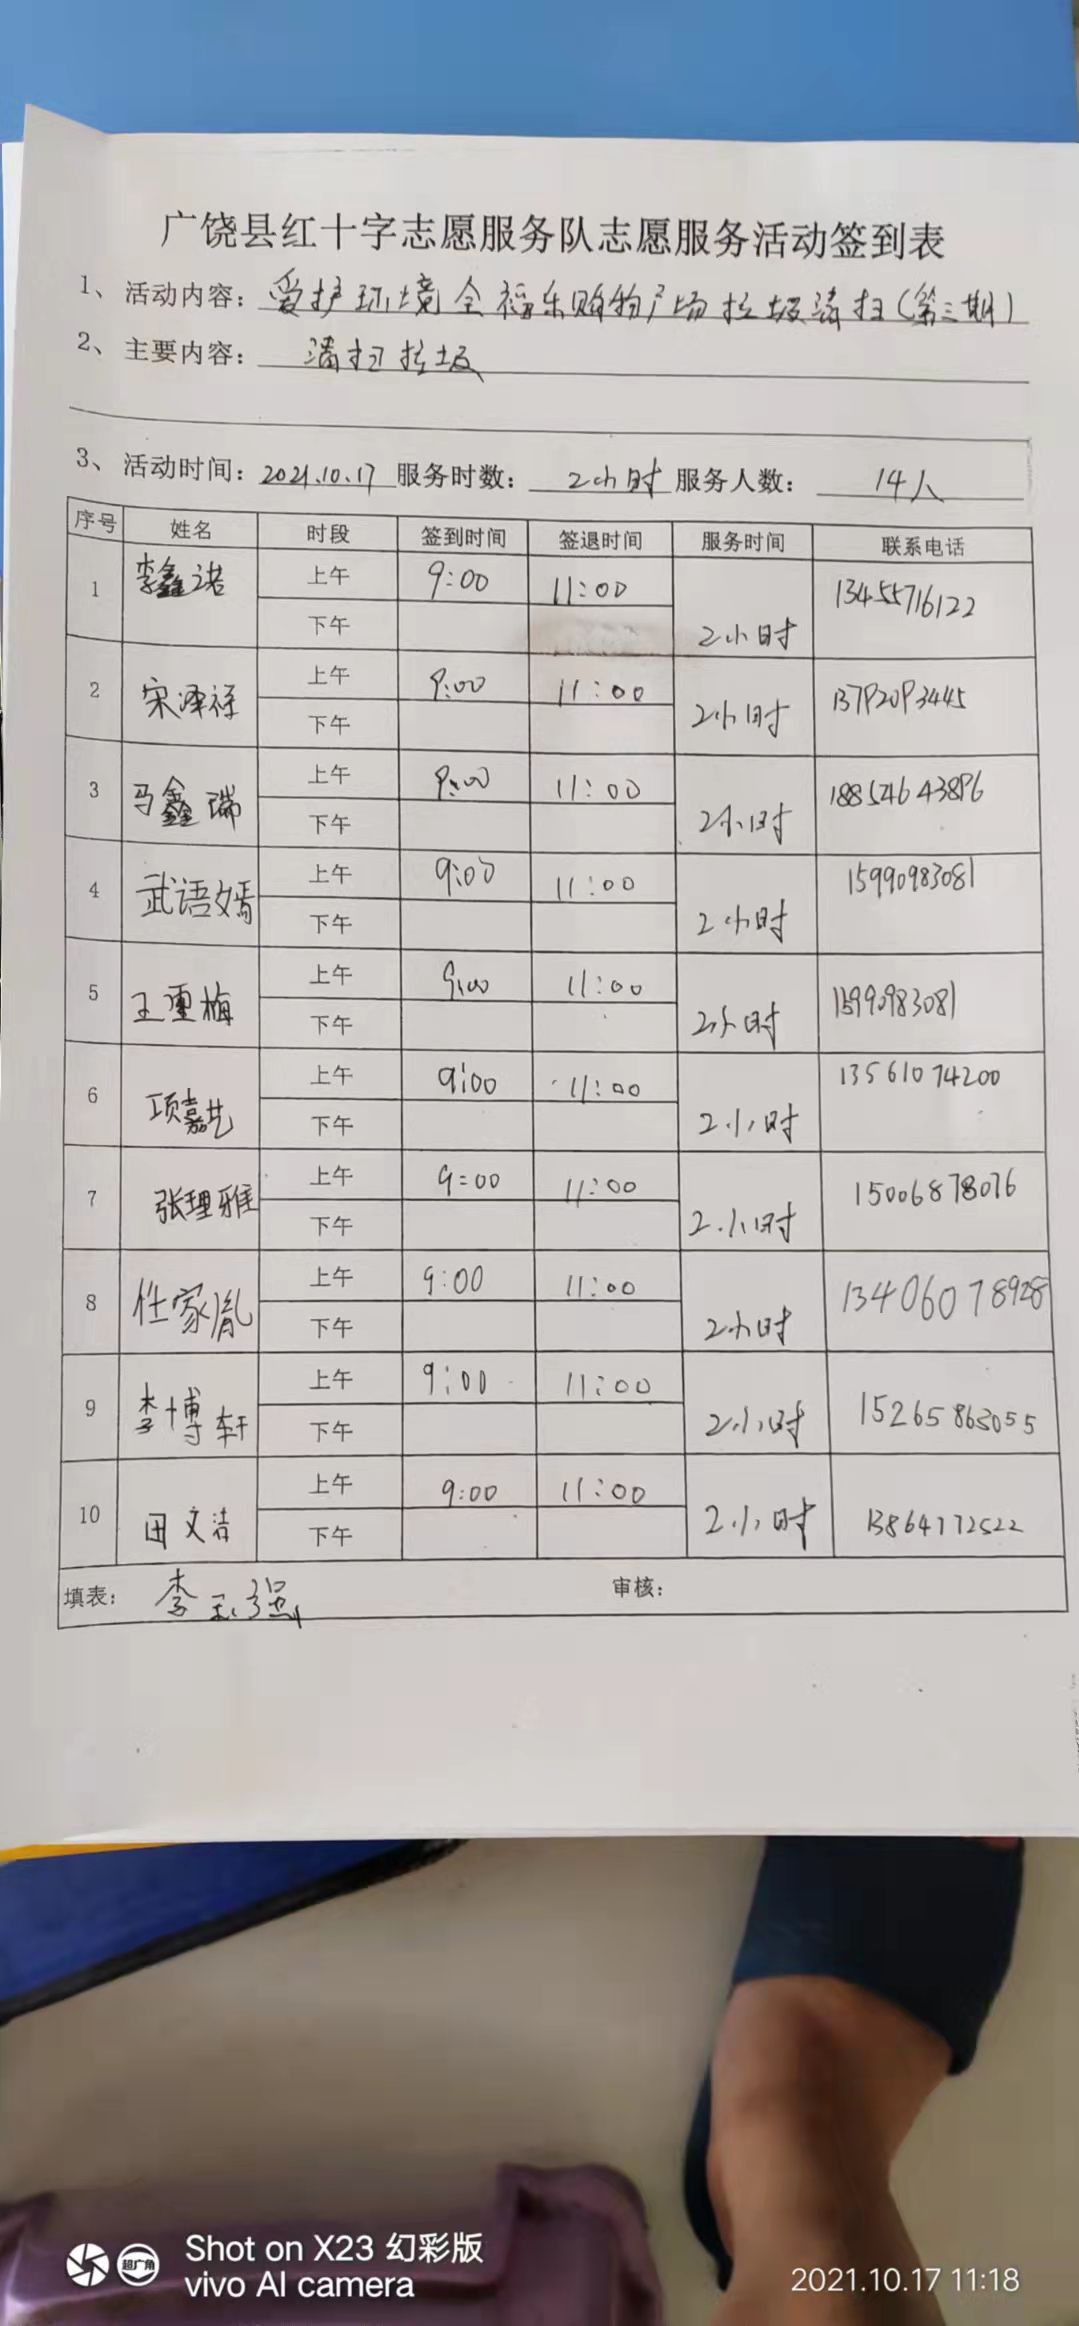 广饶县红十字志愿服务队志愿服务活动签到表
1、活动内容：爱护环境全福乐购物广场垃圾清扫（第三期）
2、主要内容：清扫垃圾
3、活动时间：2021.10.17 服务时数：2小时 服务人数：14人
序号 姓名 时段 签到时间 签退时间 服务时间 联系电话
1 李鑫诺 上午 9:00 11:00 2小时 13455716122
下午
2 宋泽祥 上午 9:00 11:00 2小时 13792093445
下午
3 马鑫瑞 上午 9:00 11:00 2小时 18854643896
下午
4 武语嫣 上午 9:00 11:00 2小时 15990983081
下午
5 王重梅 上午 9:00 11:00 2小时 15990983081
下午
6 项嘉艺 上午 9:00 11:00 2小时 13561074200
下午
7 张理雅 上午 9:00 11:00 2小时 15006878076
下午
8 任家胤 上午 9:00 11:00 2小时 13406078928
下午
9 李博轩 上午 9:00 11:00 2小时 15265863055
下午
10 田文洁 上午 9:00 11:00 2小时 13864772522
下午
填表：李玉强 审核：
超广角
Shot on X23 幻彩版
vivo AI camera
2021.10.17 11:18